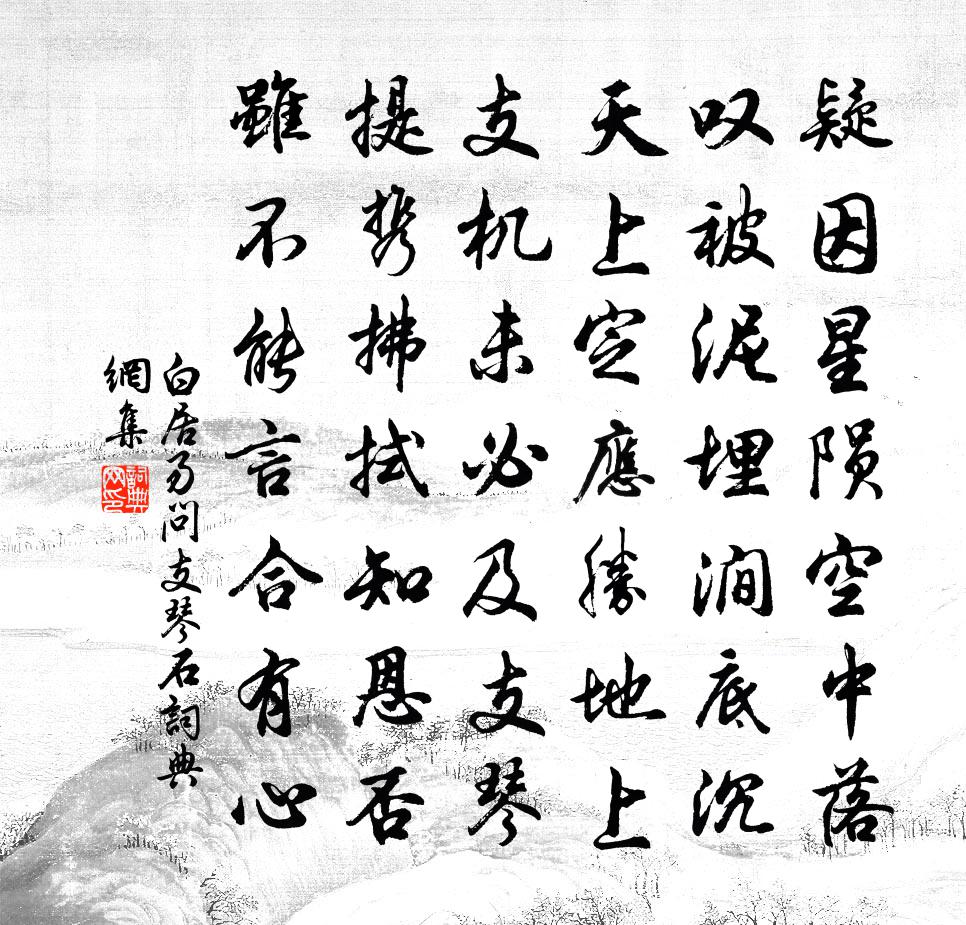 疑因星陨空中落
叹被泥埋涧底沉
天上定應勝地上
支机未必及支琴
提携拂拭知恩否
雖不能言合有心
白居易問支琴石詞典
網集
詞典
网印